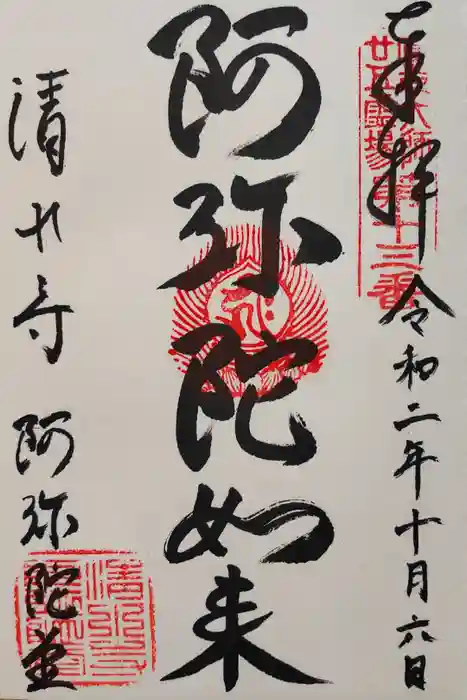 奉拝 令和二年十月六日
圓光大師
廿五霊場第十三番
阿弥陀如来
清水寺 阿弥陀堂